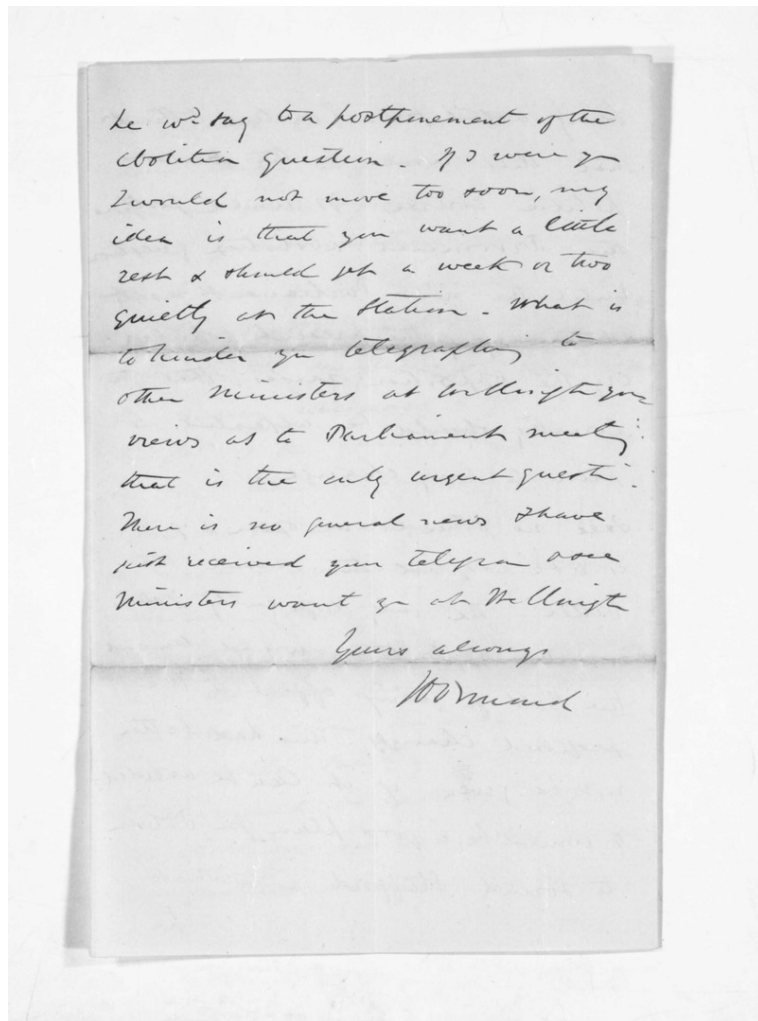 he wd. say to a postponement of the
abolition question. If I were you
I would not move too soon, my
idea is that you want a little
rest & should get a week or two
quietly at the Station. What is
to hinder you telegraphing to
other Ministers at Wellington your
views as to Parliament meeting
that is the only urgent question.
There is no general news I have
just received your telegram & see
Ministers want you at Wellington
Yours always
JD Ormond